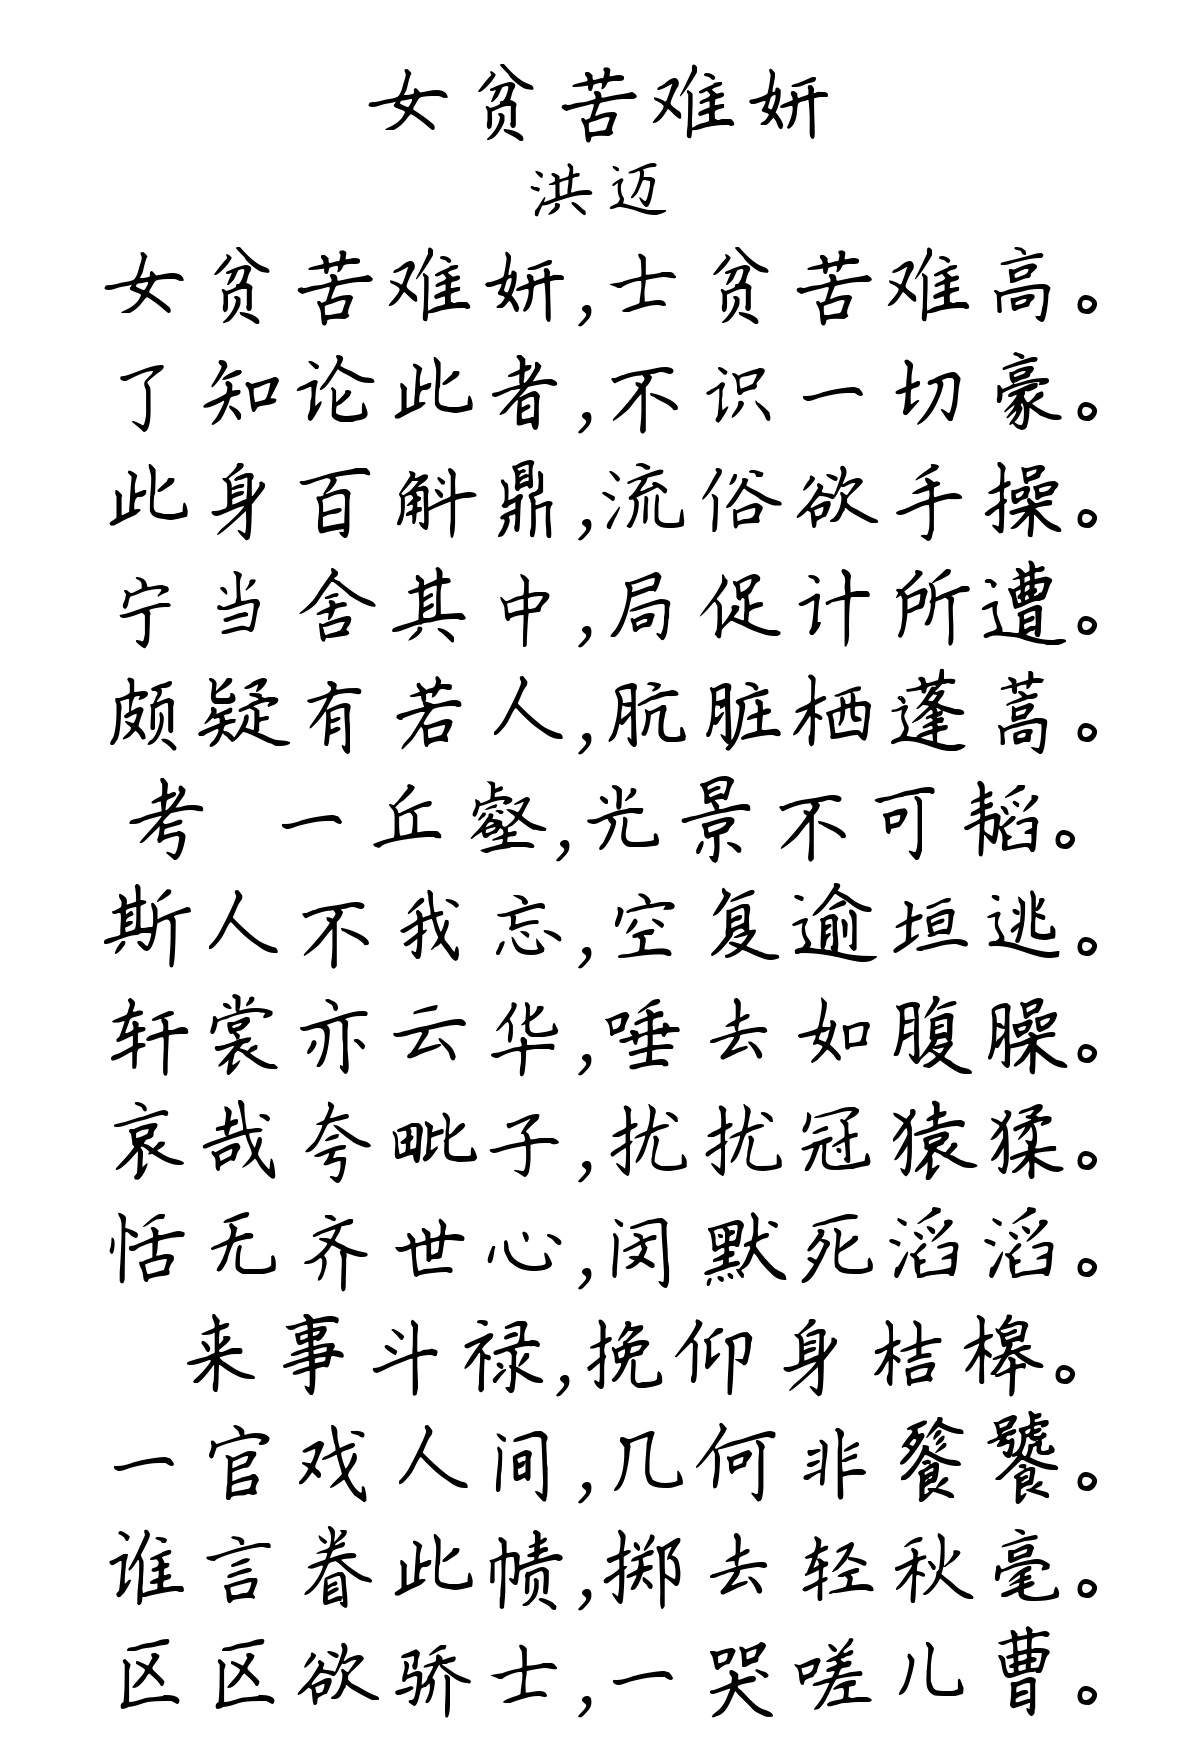 女贫苦难妍
洪迈
女贫苦难妍,士贫苦难高。
了知论此者,不识一切豪。
此身百斛鼎,流俗欲手操。
宁当舍其中,局促计所遭。
颇疑有若人,肮脏栖蓬蒿。
考 一丘壑,光景不可韬。
斯人不我忘,空复逾垣逃。
轩裳亦云华,唾去如腹臊。
哀哉夸毗子,扰扰冠猿猱。
恬无齐世心,闵默死滔滔。
来事斗禄,挽仰身桔槔。
一官戏人间,几何非餮饕。
谁言眷此帻,掷去轻秋毫。
区区欲骄士,一哭嗟儿曹。